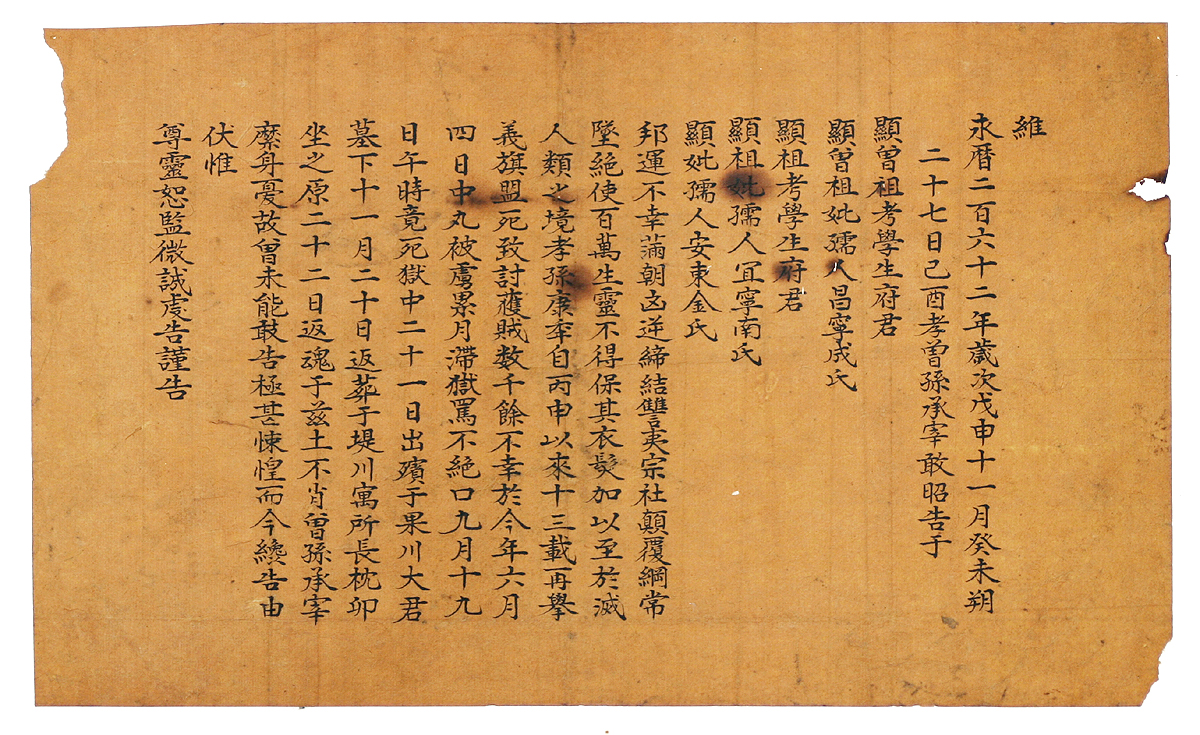 維
永曆二百六十二年歲次戊申十一月癸未朔
二十七日己酉孝曾孫承宰敢昭告于
顯曾祖考學生府君
顯曾祖妣孺人昌寧成氏
顯祖考學生府君
顯祖妣孺人宜寧南氏
顯妣孺人安東金氏
邦運不幸滿朝凶逆締結讐夷宗社顚覆綱常
墜絶使百萬生靈不得保其衣髮加以至於滅
人類之境孝孫康秊自丙申以來十三載再擧
義旗盟死致討蒦賊数千餘不幸於今年六月
四日中丸被虜累月滯獄罵不絶口九月十九
日午時竟死獄中二十一日出殯于果川大君
墓下十一月二十日返葬于堤川寓所長枕卯
坐之原二十二日返魂于兹土不肖曾孫承宰
縻身憂故曾未能敢告極甚悚惶而今纔告由
伏惟
尊靈恕監微誠虔告謹告